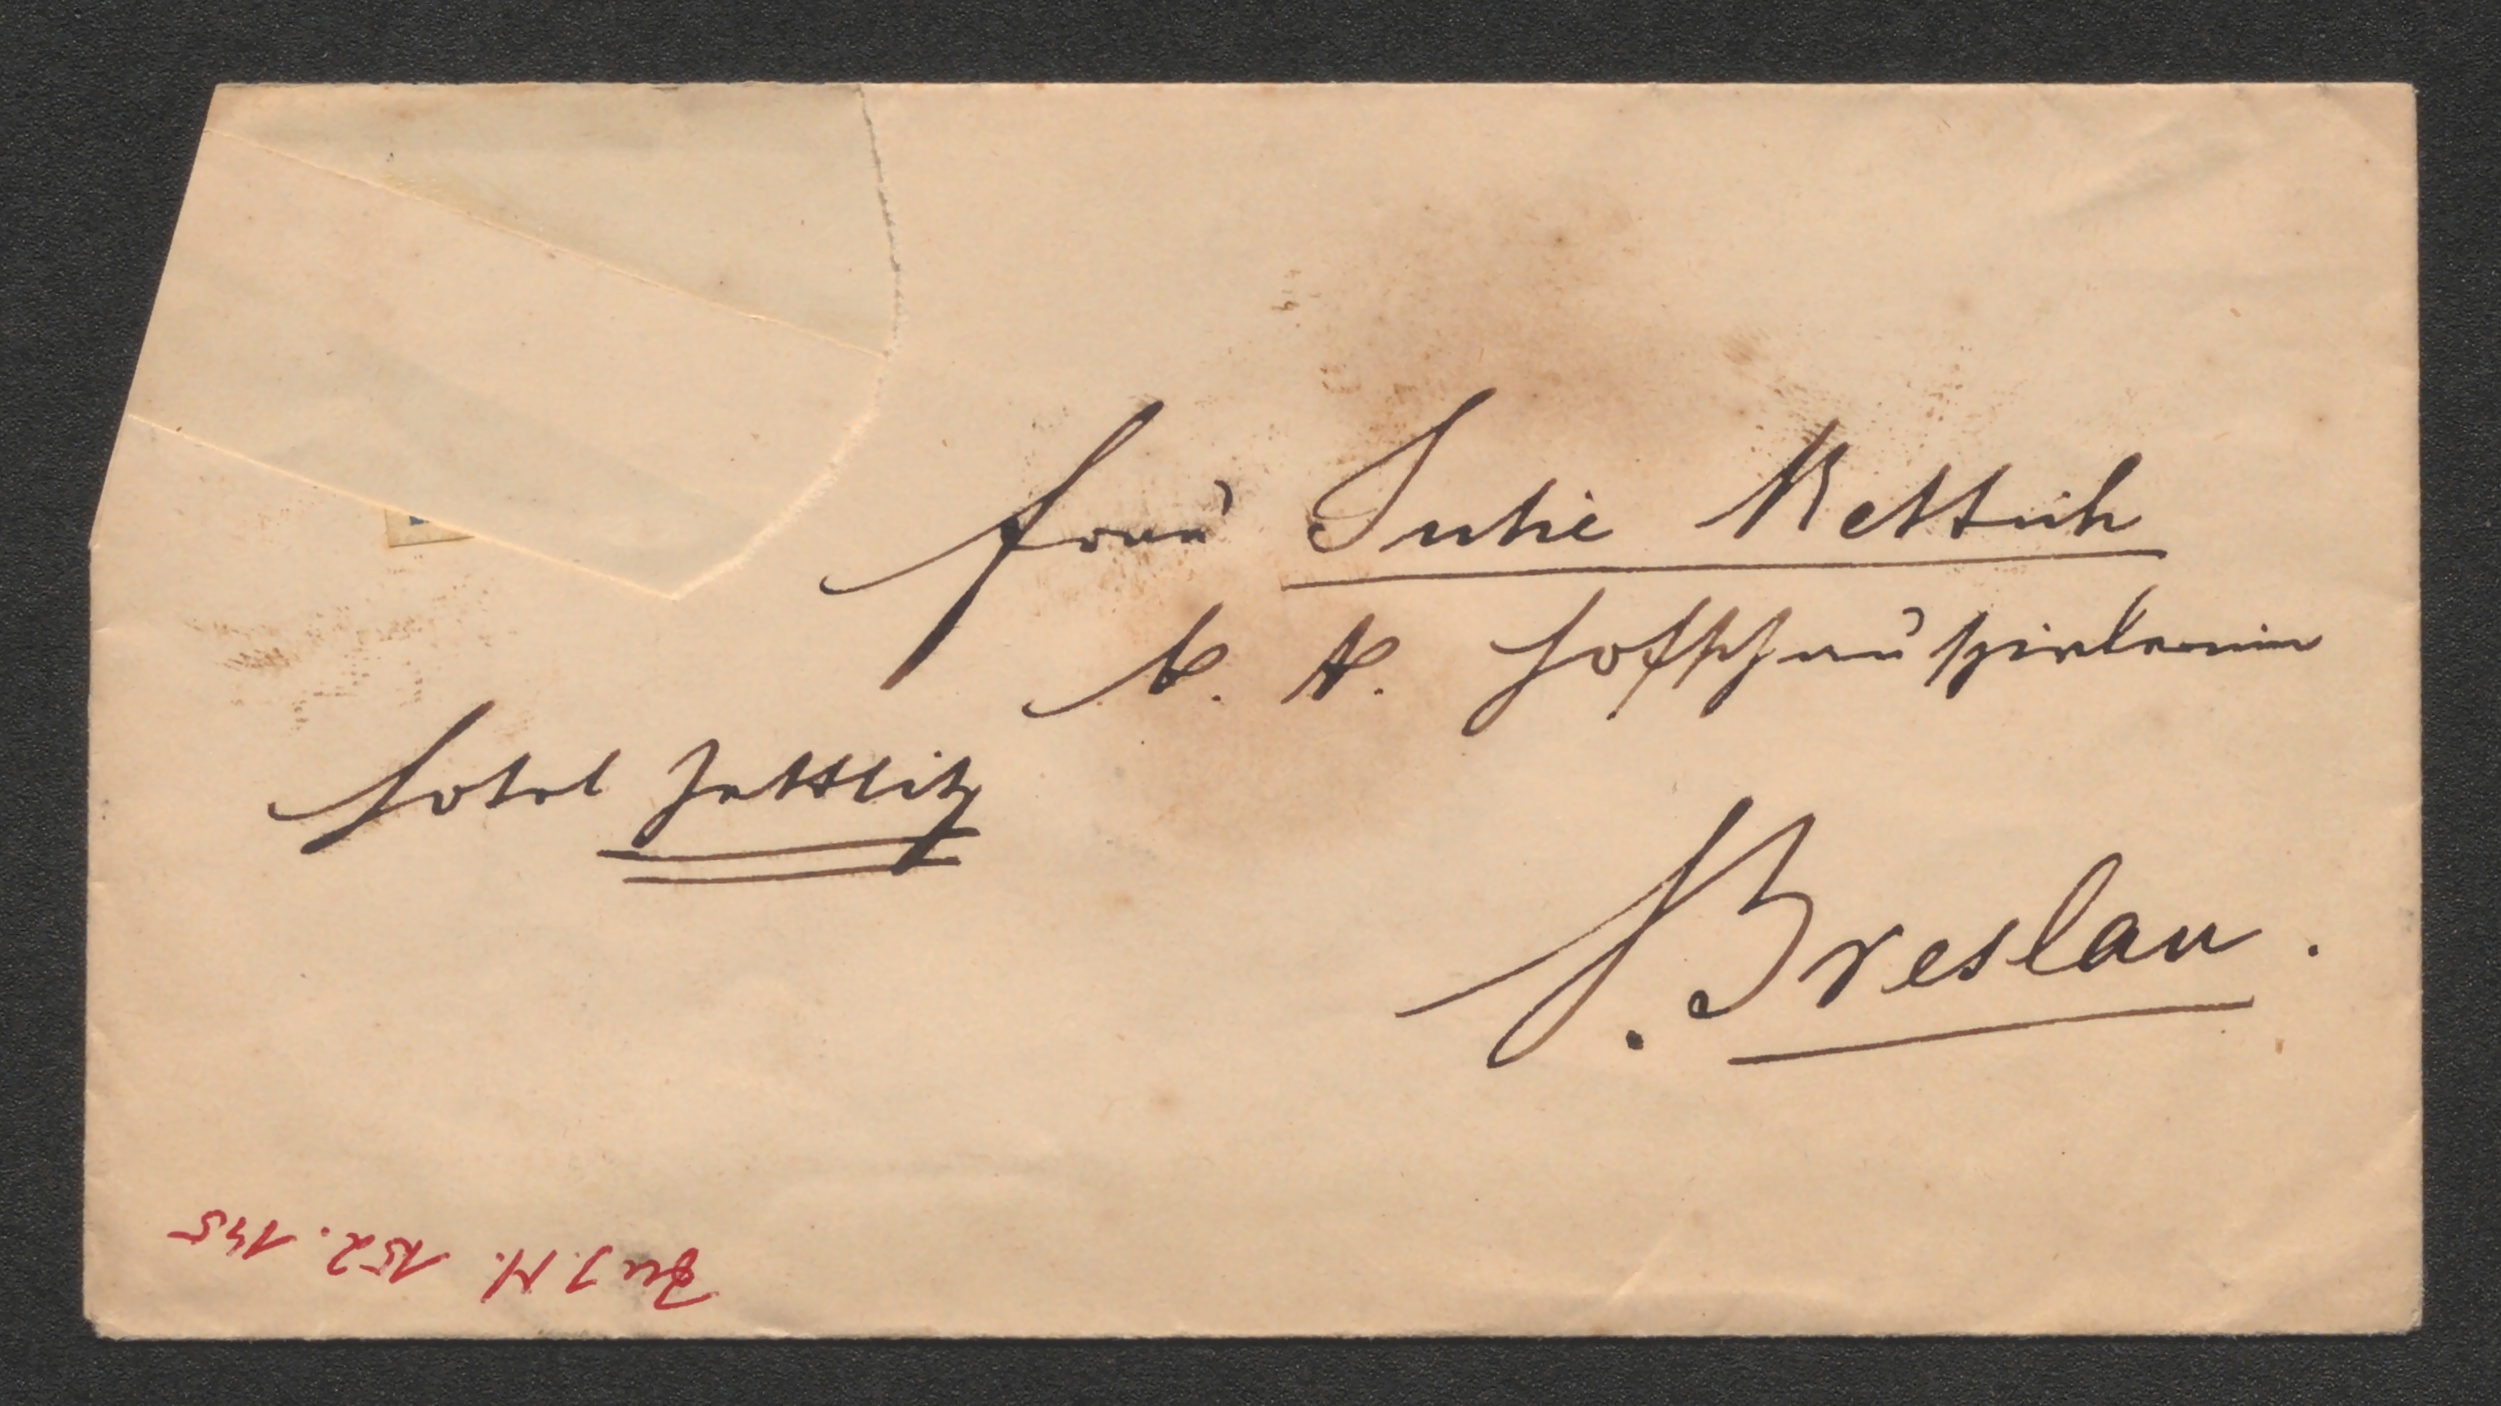 Frau Julie Rettich
k. k. Hofschauspielerinn
Hotel Zettlitz
Breslau.
Zu J. N. 152.145